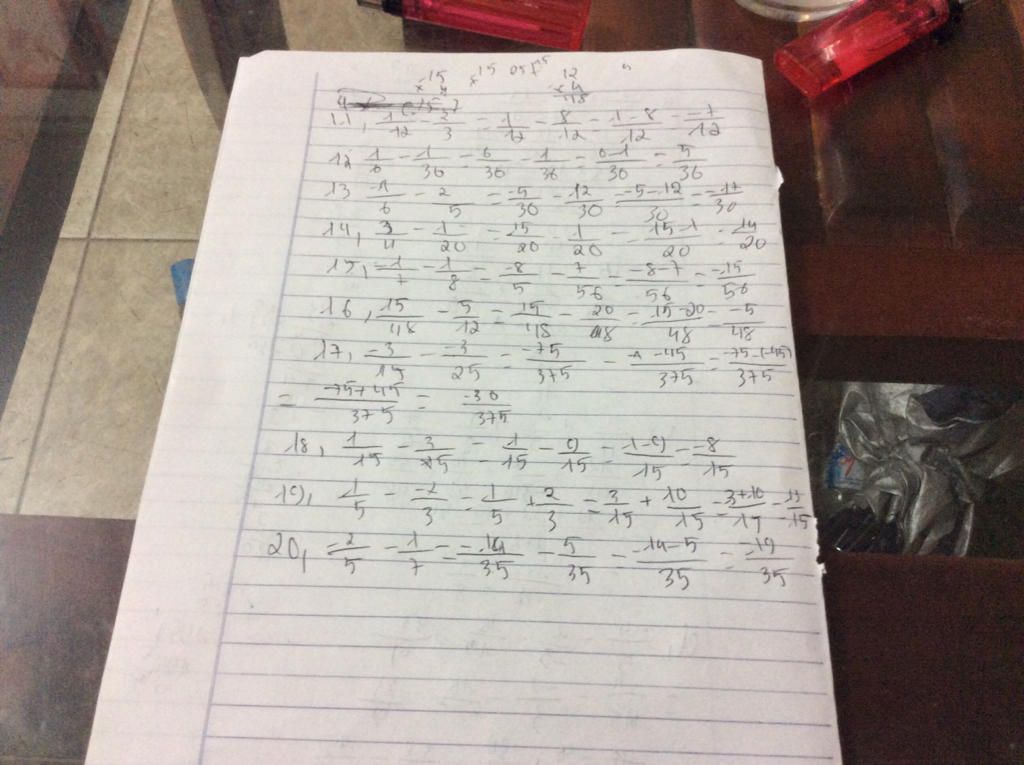 -15 x15 12
x 4 x 4
48
11, 1/12 - 2/3 = 1/12 - 8/12 = 1-8/12 = -7/12
12 1/6 - 1/36 = 6/36 - 1/36 = 6-1/36 = 5/36
13 -1/6 - 2/5 = -5/30 - 12/30 = -5-12/30 = -17/30
14, 3/4 - 1/20 = 15/20 - 1/20 = 15-1/20 = 14/20
15, -1/7 - 1/8 = -8/5 - 7/56 = -8-7/56 = -15/56
16, 15/48 - 5/12 = 15/48 - 20/48 = 15-20/48 = -5/48
17, -3/15 - -3/25 = -75/375 - -45/375 = -75-(-45)/375
= -75+45/375 = -30/375
18, 1/15 - 3/15 = 1/15 - 9/15 = 1-9/15 = -8/15
19, 1/5 - -2/3 = 1/5 + 2/3 = 3/15 + 10/15 = 3+10/15 = 13/15
20, -2/5 - 1/7 = -14/35 - 5/35 = -14-5/35 = -19/35